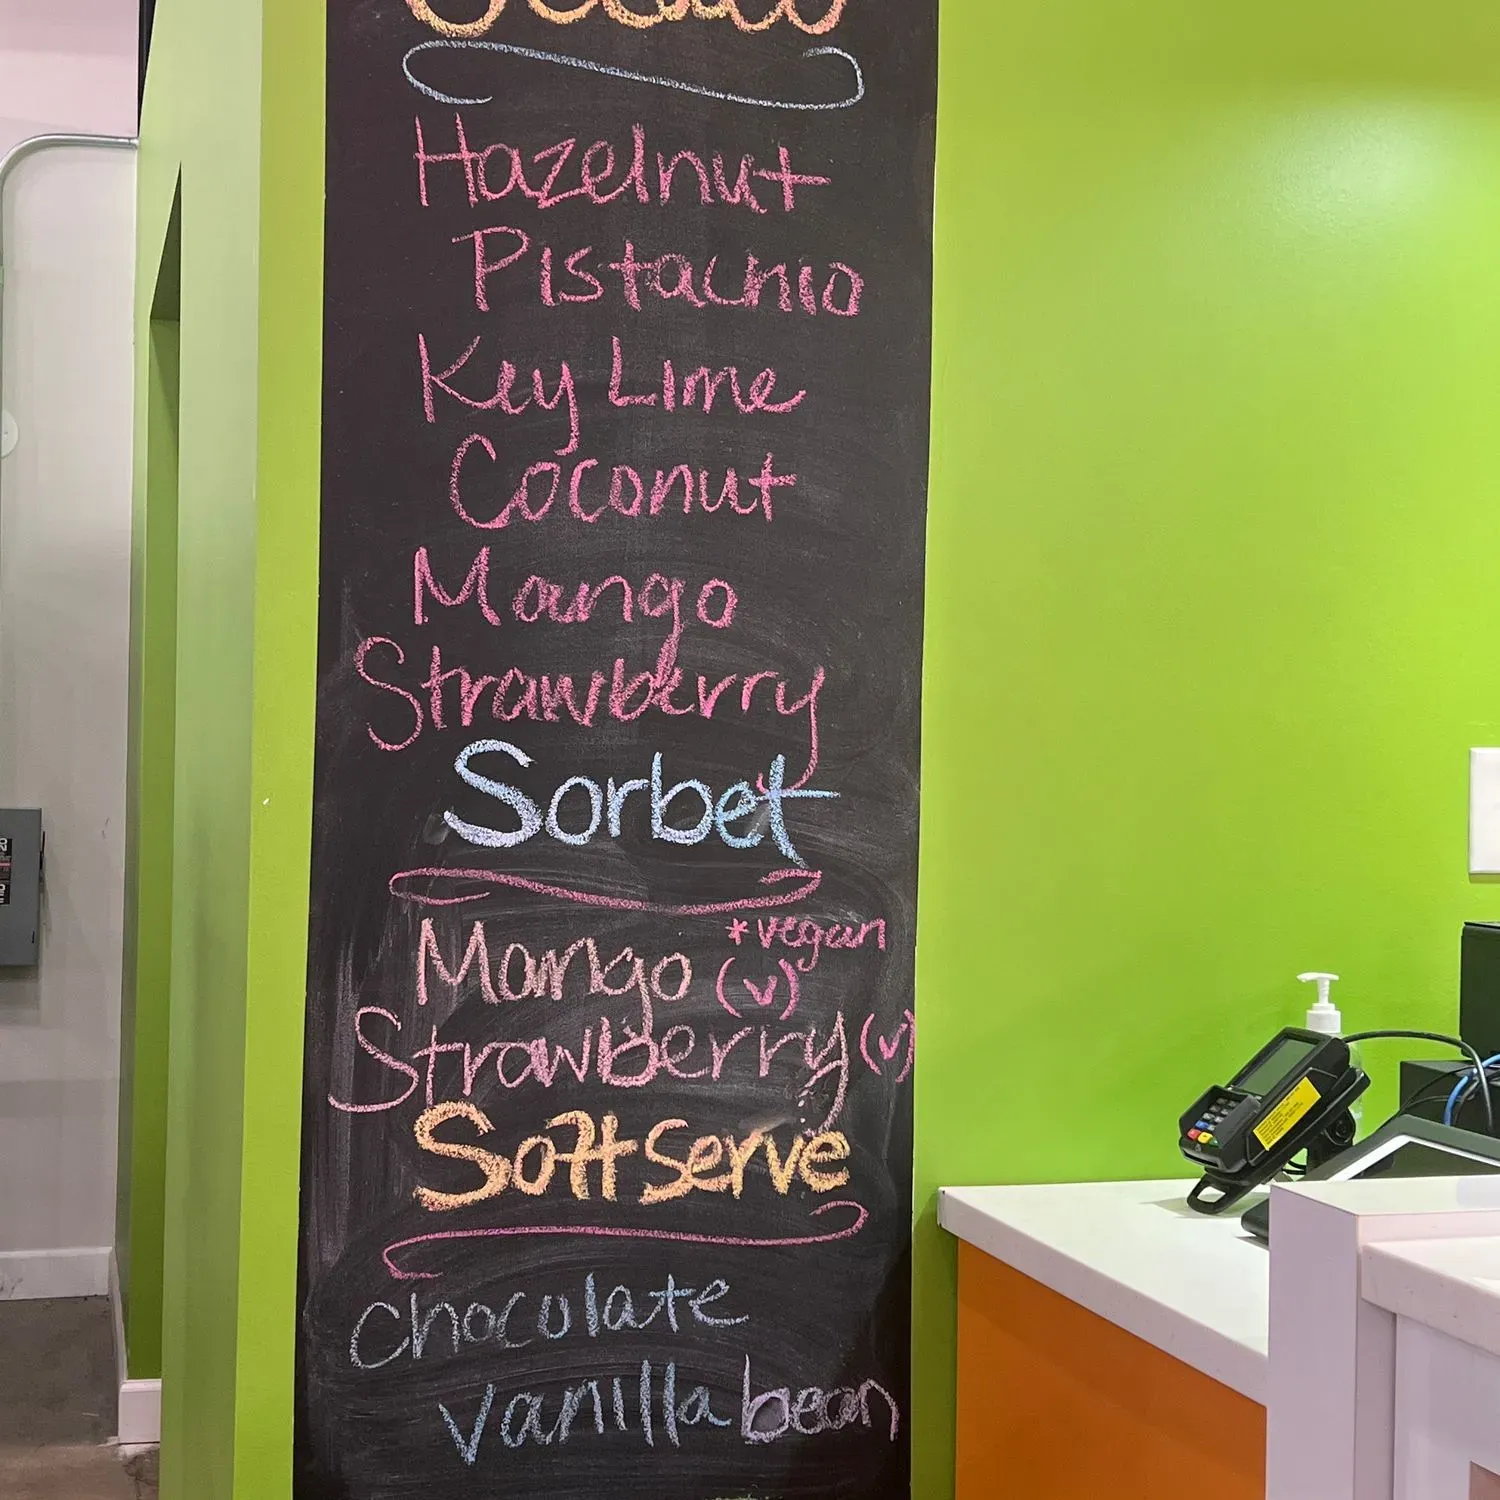 Gelato
Hazelnut
Pistachio
Key Lime
Coconut
Mango
Strawberry
Sorbet
*vegan
Mango (v)
Strawberry (v)
Soft serve
Chocolate
vanilla bean